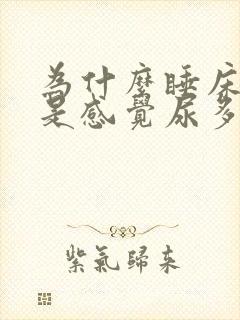 為什麼睡床
是感覺尿多
紫氣歸來